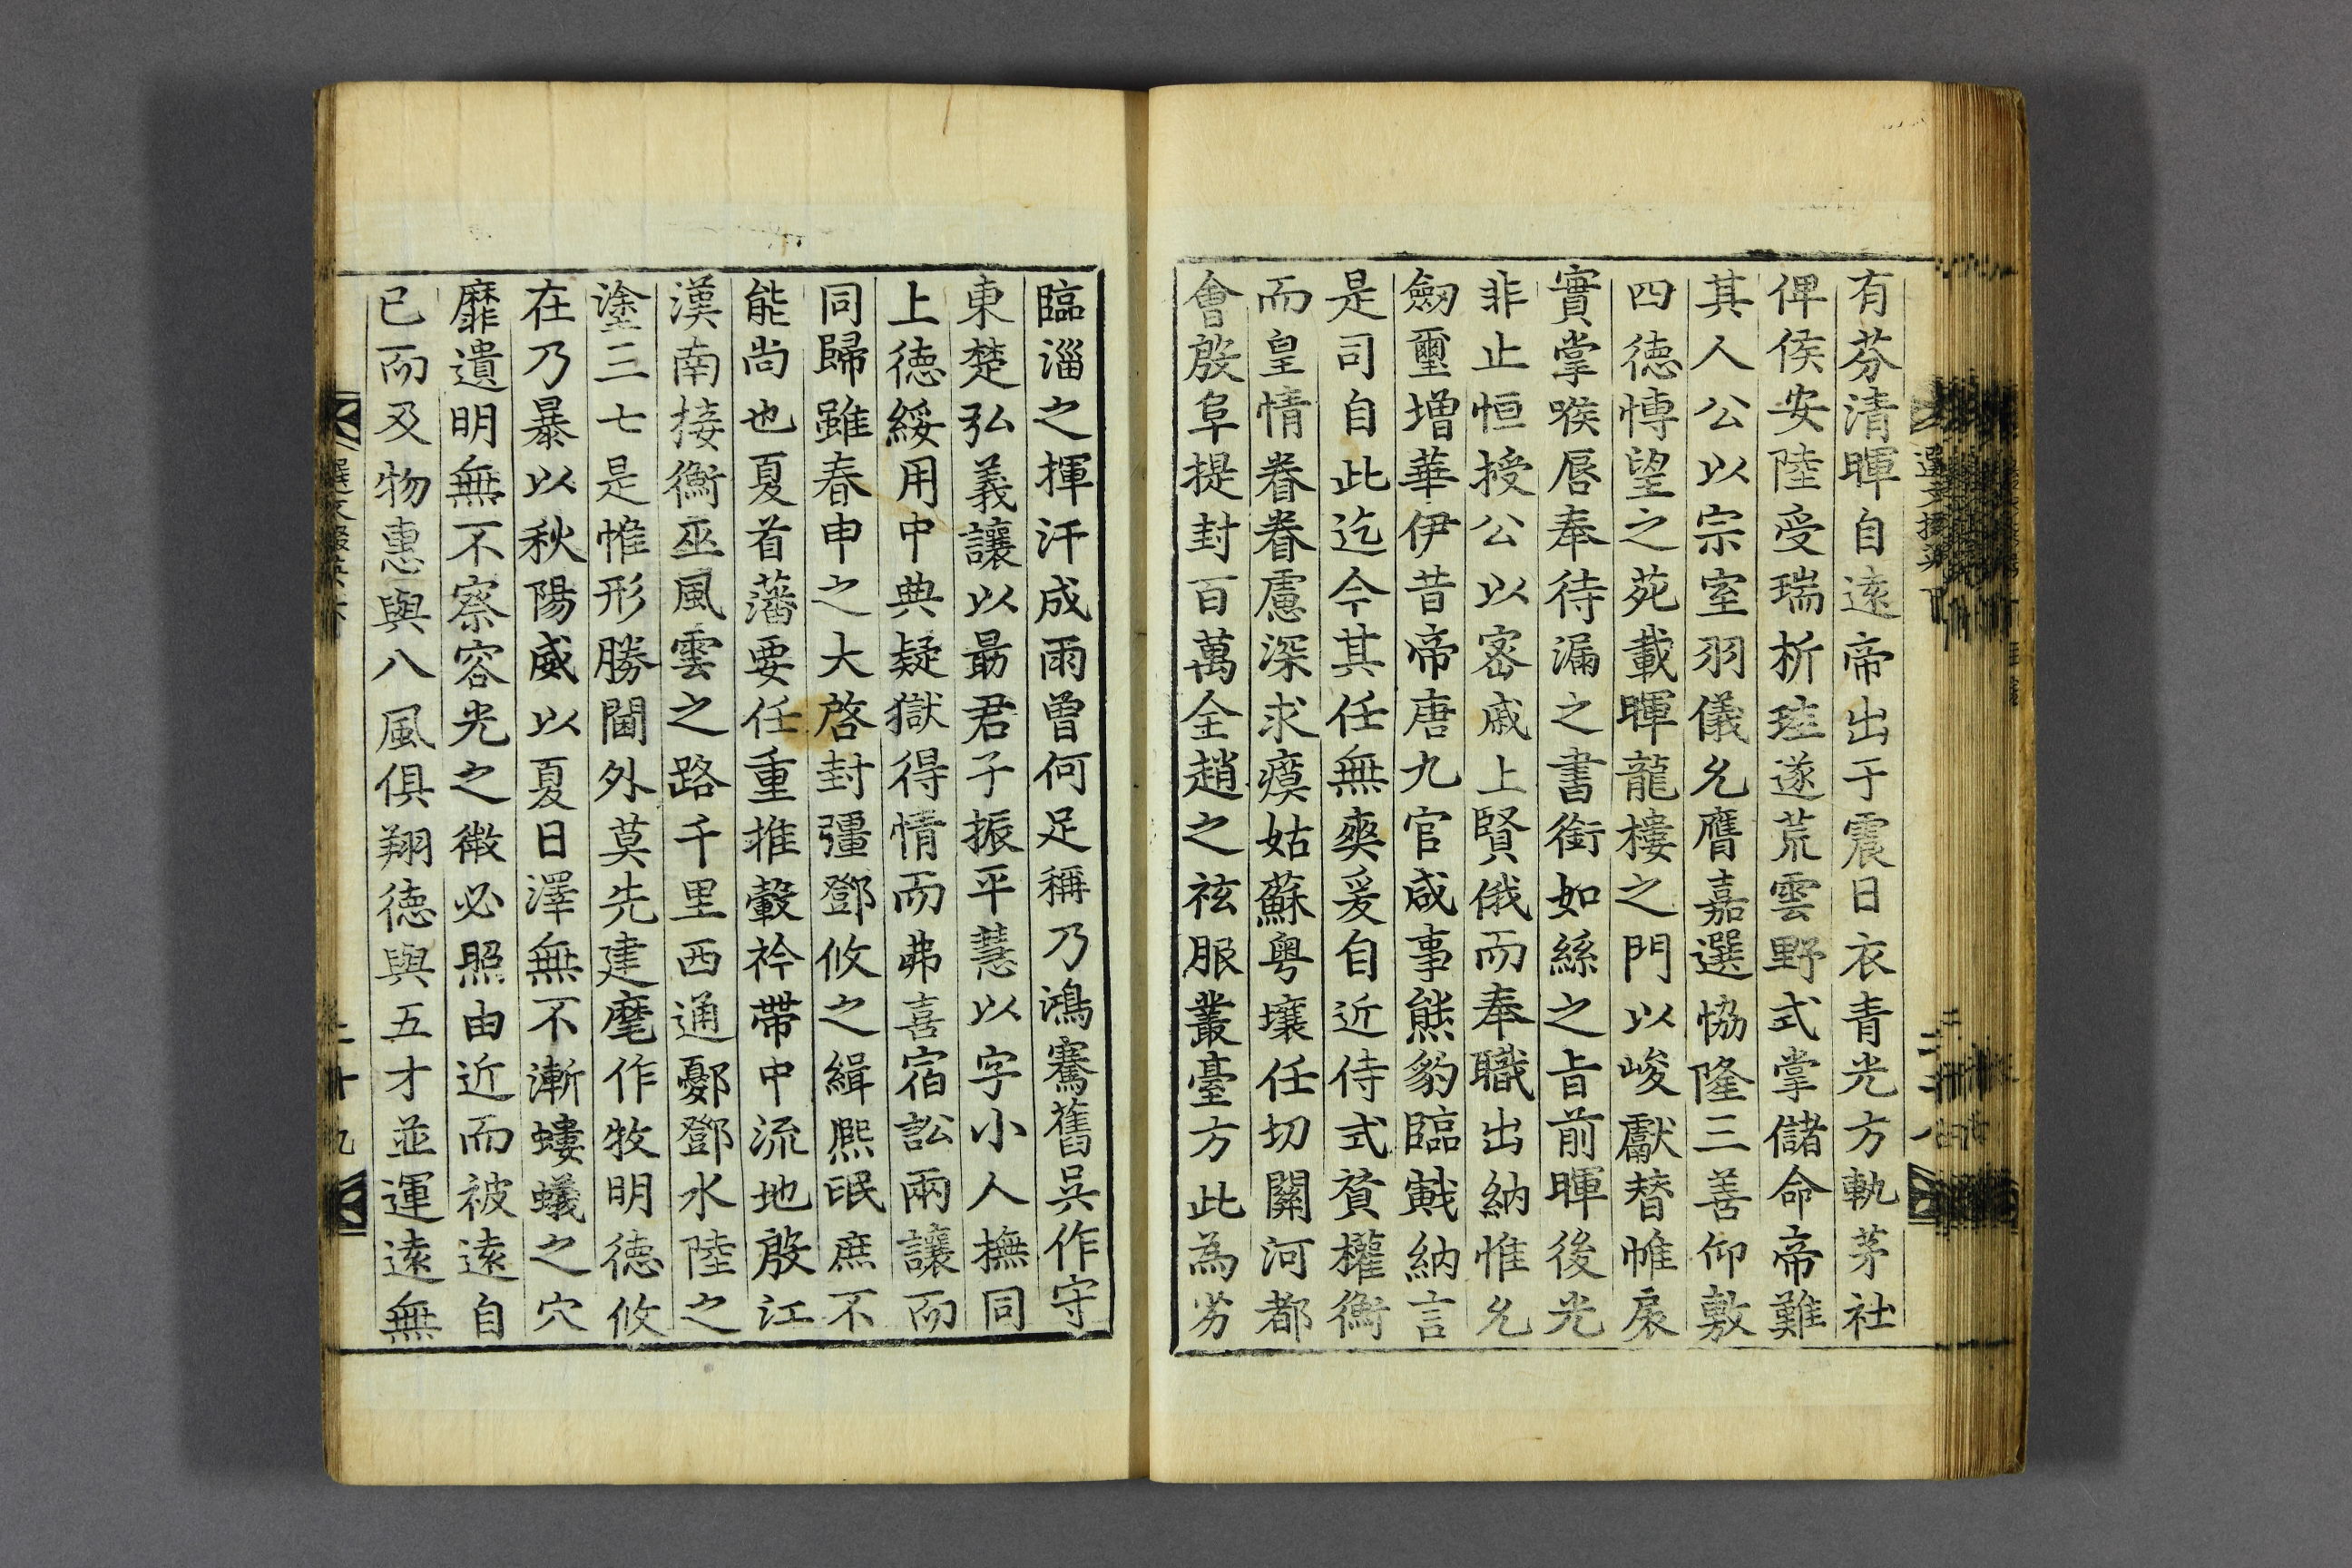 有芬清暉自遠帝出于震日衣青光方軌茅社
俾侯安陸受瑞析珪遂荒雲野式掌儲命帝難
其人公以宗室羽儀允膺嘉選協隆三善仰敷
四德博望之苑載暉龍樓之門以峻獻替帷扆
實掌喉唇奉待漏之書銜如絲之旨前暉後光
非止恒授公以密戚上賢俄而奉職出納惟允
劒璽增華伊昔帝唐九官咸事熊豹臨戟納言
是司自此迄今其任無爽爰自近侍式贊權衡
而皇情眷眷慮深求瘼姑蘇粤壤任切關河都
會殷阜提封百萬全趙之袨服叢臺方此為劣
臨淄之揮汗成雨曾何足稱乃鴻騫舊吳作守
東楚弘義讓以勗君子振平慧以字小人撫同
上德綏用中典疑獄得情而弗喜宿訟兩讓而
同歸雖春申之大啓封彊鄧攸之緝熙氓庶不
能尚也夏首藩要任重推轂衿帶中流地殷江
漢南接衡巫風雲之路千里西通鄾鄧水陸之
塗三七是惟形勝閫外莫先建麾作牧明德攸
在乃暴以秋陽威以夏日澤無不漸螻蟻之穴
靡遺明無不察容光之微必照由近而被遠自
已而及物惠與八風俱翔德與五才並運遠無
二十九